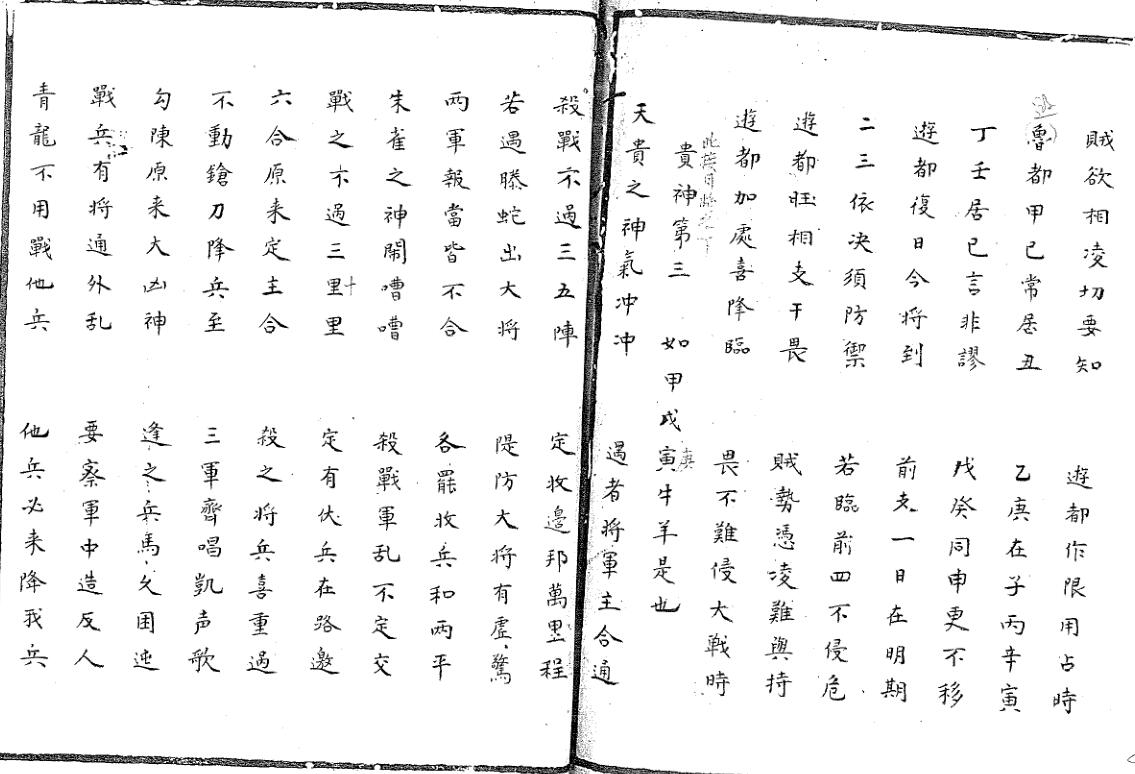 賊欲相凌切要知　遊都作限用占時
魯都甲己常居丑　乙庚在子丙辛寅
丁壬居巳言非謬　戊癸同申更不移
遊都復日今將到　前支一日在明期
二三依決須防禦　若臨前四不侵危
遊都旺相支干畏　賊勢憑凌難與持
遊都加處喜降臨　畏不難侵大戰時
貴神第三　如甲戊寅庚牛羊是也
天貴之神氣冲冲　遇者將軍主合通
殺戰不過三五陣　定收邊邦萬里程
若遇螣蛇出大将　隄防大将有虛驚
兩軍報當皆不合　各罷收兵和兩平
朱雀之神鬧嘈嘈　殺戰軍乱不定交
戰之不過三十里里　定有伏兵在路邀
六合原来定主合　殺之将兵喜重過
不動鎗刀降兵至　三軍齊唱凱声歌
勾陳原来大凶神　逢之兵馬久困迍
戰兵有将通外乱　要察軍中造反人
青龍不用戰他兵　他兵必来降我兵